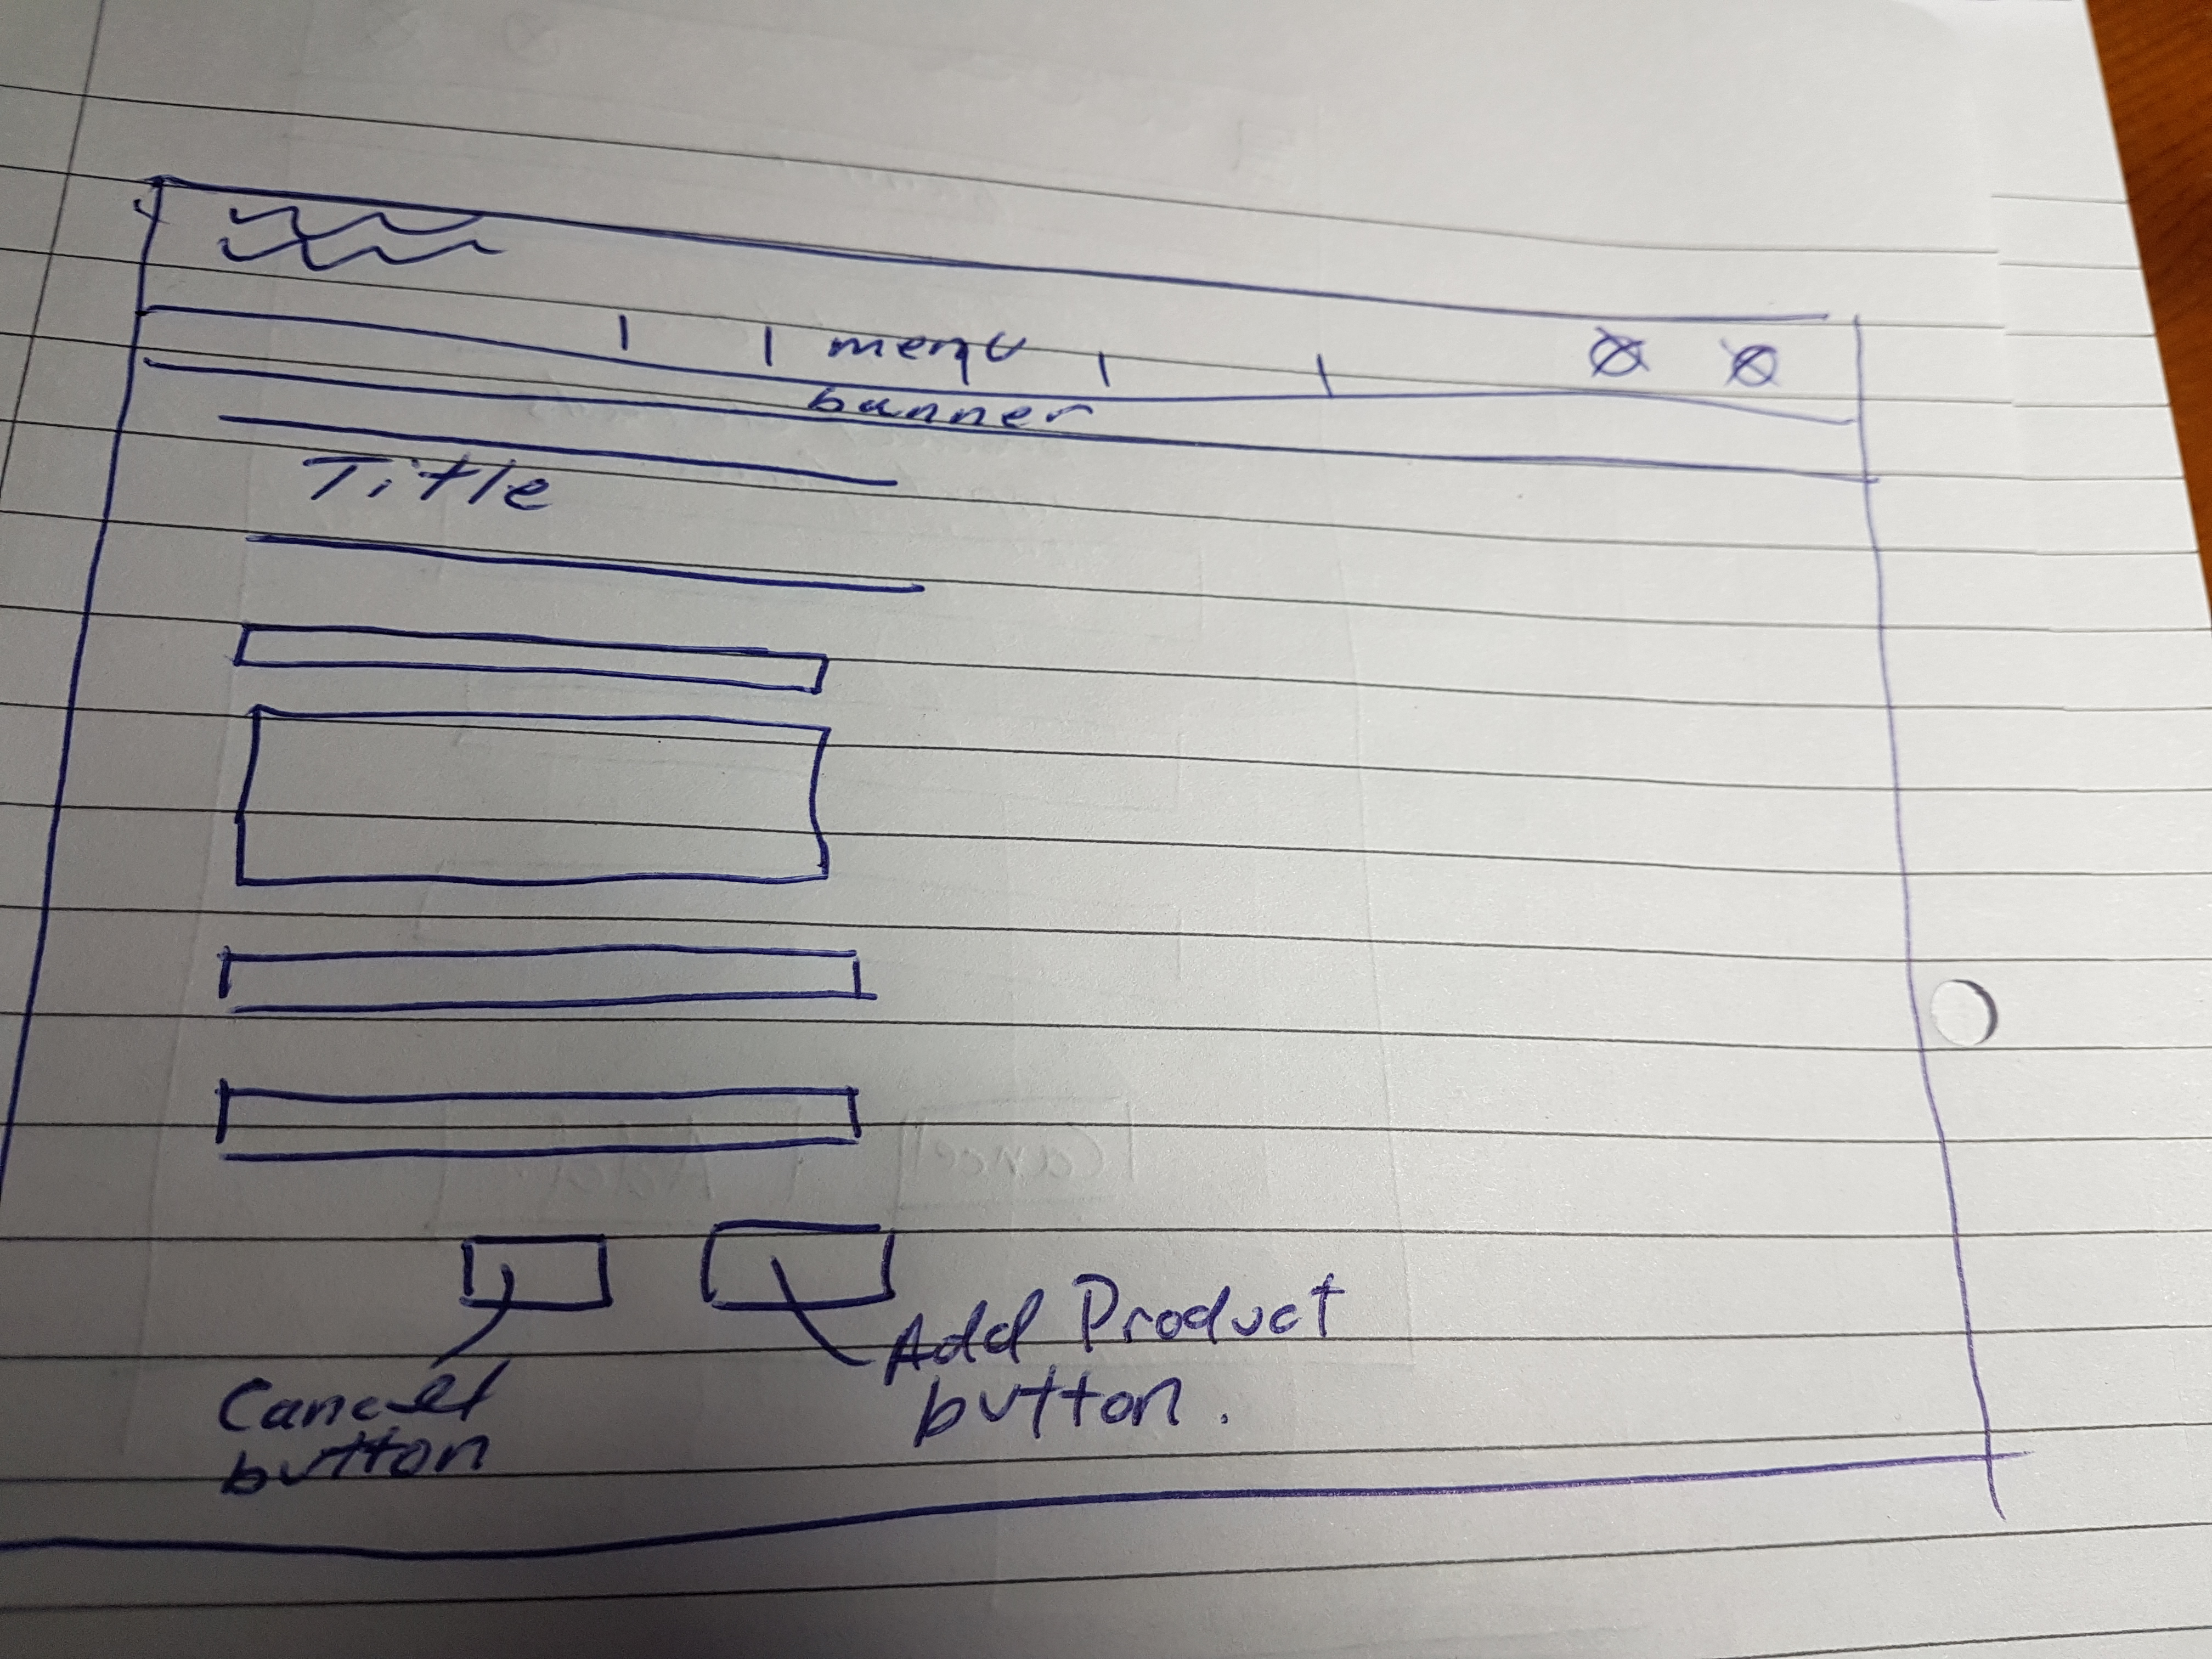 menu
banner
Title
Cancel
button
Add Product
button.